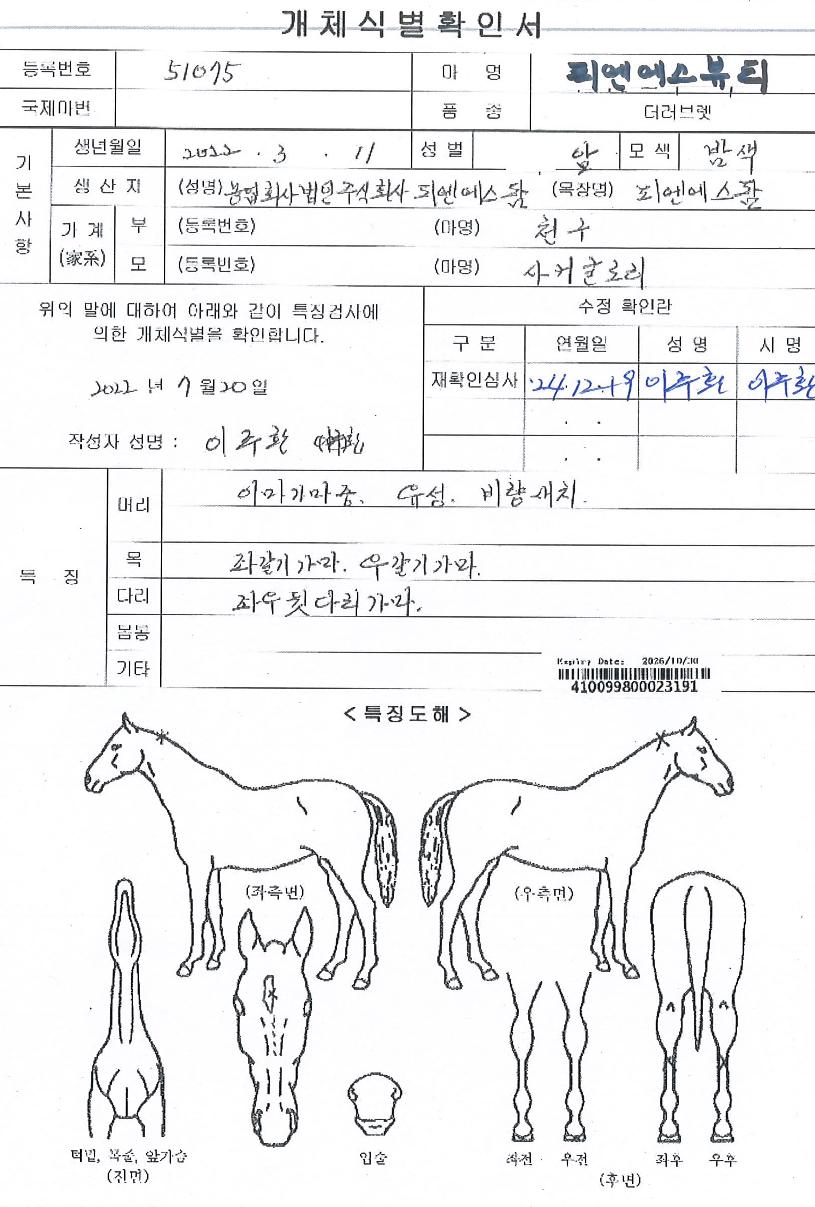 개체식별확인서
등록번호 51075 마 명 피엔에스뷰티
국제마번 품 종 더러브렛
기본사항
생년월일 2022 . 3 . 11 성 별 암 모 색 밤색
생 산 지 (성명) 농업회사법인주식회사 피엔에스팜 (목장명) 피엔에스팜
가 계 (家系) 부 (등록번호) (마명) 천구
모 (등록번호) (마명) 사커글로리
위의 말에 대하여 아래와 같이 특징검사에
의한 개체식별을 확인합니다.
2022 년 7 월 20 일
작성자 성명 : 이주환
수정 확인란
구 분 연월일 성 명 시 명
재확인심사 '24.12.19 이주환 이주환
. .
. .
특 징
머리 이마가마중. 유성. 비량새치.
목 좌갈기가마. 우갈기가마.
다리 좌우뒷다리가마.
몸통
기타
Expiry Date: 2026/10/30
410099800023191
< 특징도해 >
(좌측면) (우측면)
턱밑, 목줄, 앞가슴
(전면)
입술
좌전 우전 좌후 우후
(후면)